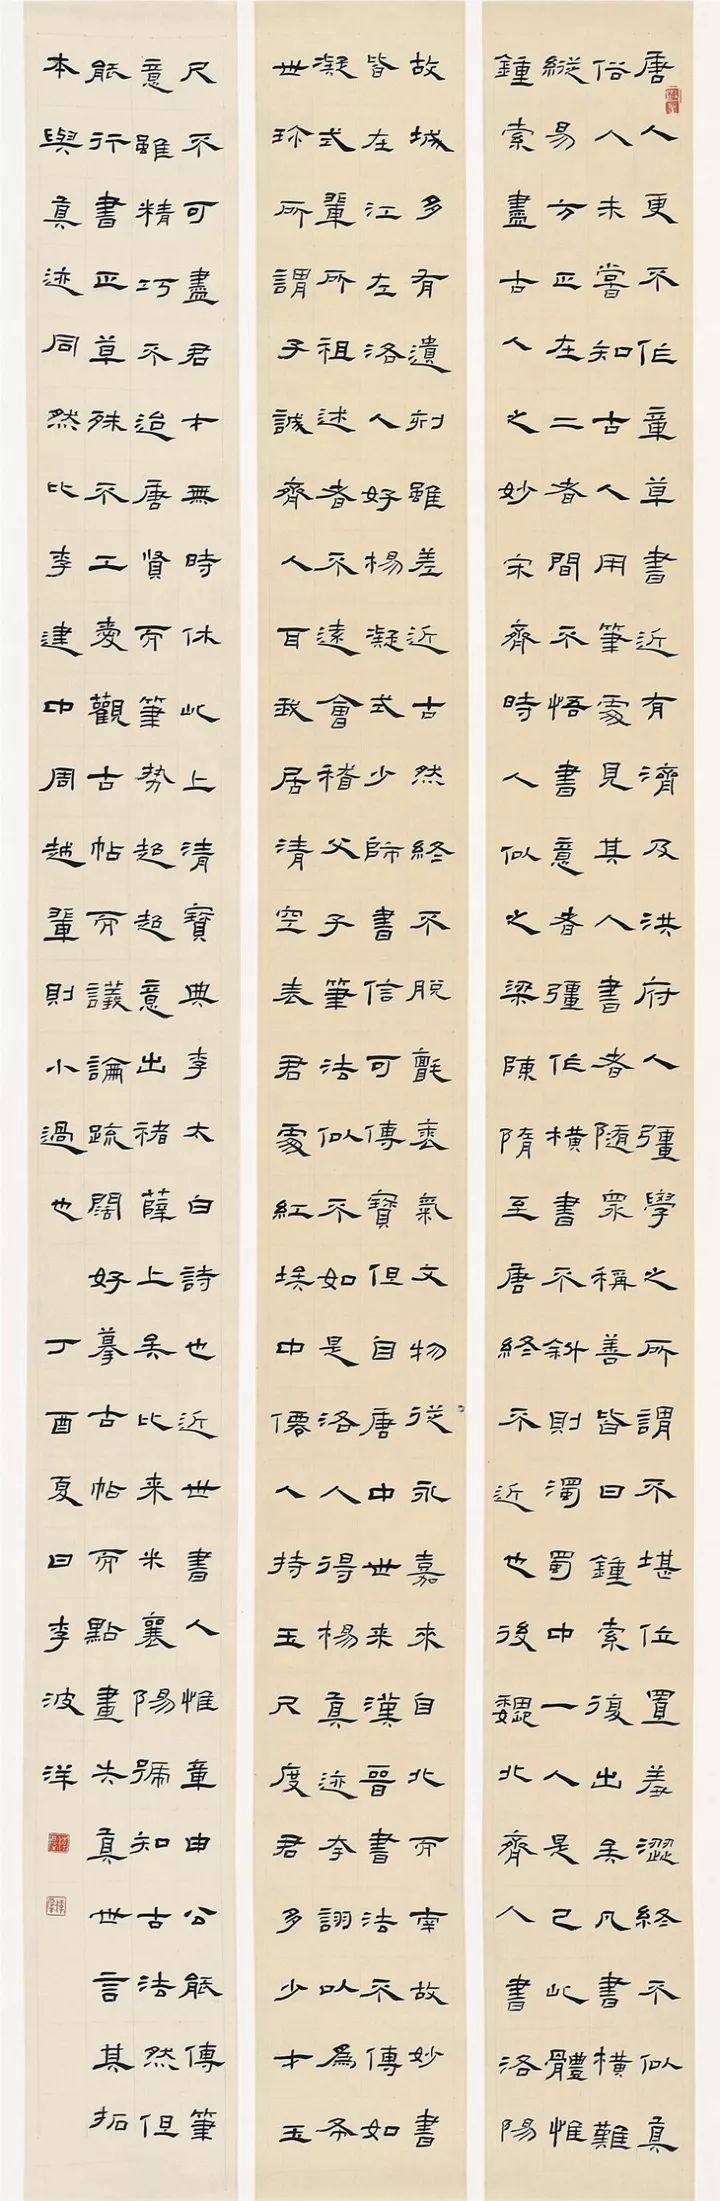 唐人更不作章草書近有濟及洪府人彊學之所謂不堪位置羞澀終不似真
俗人未嘗知古人用筆處見其人書者隨衆稱善皆曰鍾索復出矣凡書橫難
縱易方正在二者間不悟書意者彊作橫書不斜則濁蜀中一人是已此體惟
鍾索盡古人之妙宋齊時人似之梁陳隋至唐終不近也後魏北齊人書洛陽
故城多有遺刻雖差近古然終不脫氈裘氣文物從永嘉來自北而南故妙書
皆在江左洛人好楊凝式少師書信可傳寶但自唐中世来漢晉書法不傳如
凝式輩所祖述者不遠會稽父子筆法似不如是洛人得楊真迹夸詡以為希
世珎所謂子誠齊人耳我居清空表君處紅埃中僊人持玉尺度君多少才玉
尺不可盡君才無時休此上清寶典李太白詩也近世書人惟章申公能傳筆
意雖精巧不迨唐賢而筆勢超超意出褚薛上矣比来米襄陽號知古法然但
能行書正草殊不工愛觀古帖而議論疏闊好摹古帖而點畫失真世言其拓
本與真迹同然比李建中周越輩則小過也 丁酉夏日李波洋